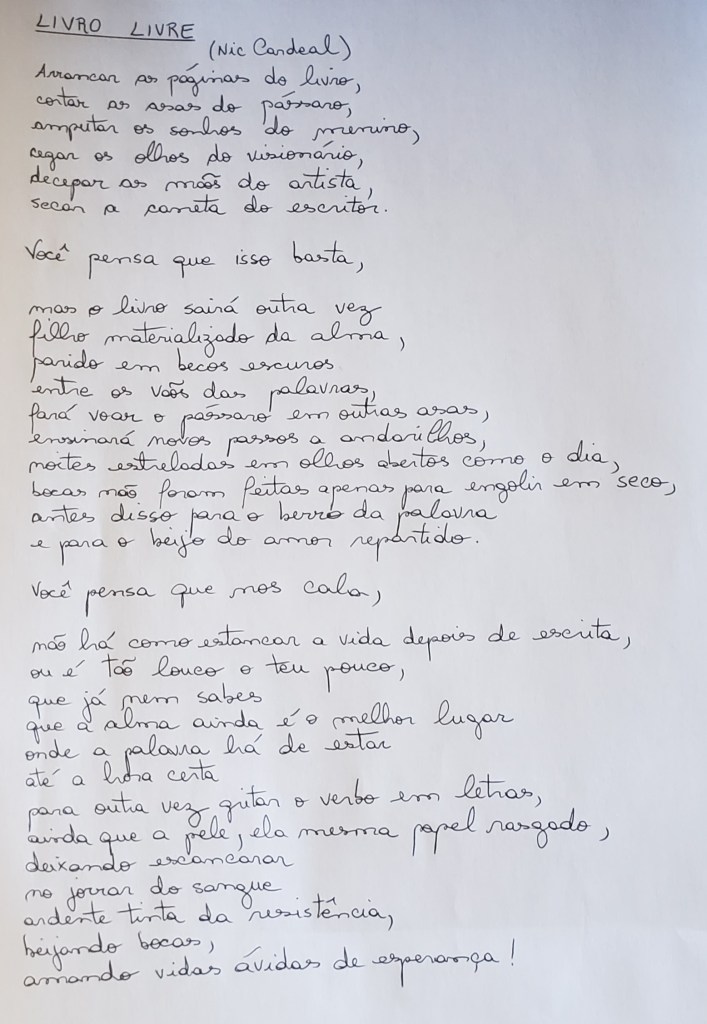 LIVRO LIVRE
(Nic Cardeal)
Arrancar as páginas do livro,
cortar as asas do pássaro,
amputar os sonhos do menino,
cegar os olhos do visionário,
decepar as mãos do artista,
secar a caneta do escritor.
Você pensa que isso basta,
mas o livro sairá outra vez
filho materializado da alma,
parido em becos escuros
entre os vãos das palavras,
fará voar o pássaro em outras asas,
ensinará novos passos a andarilhos,
noites estreladas em olhos abertos como o dia,
bocas não foram feitas apenas para engolir em seco,
antes disso para o berro da palavra
e para o beijo do amor repartido.
Você pensa que nos cala,
não há como estancar a vida depois de escrita,
ou é tão louco o teu pouco,
que já nem sabes
que a alma ainda é o melhor lugar
onde a palavra há de estar
até a hora certa
para outra vez gritar o verbo em letras,
ainda que a pele, ela mesma papel rasgado,
deixando escancarar
no jorrar do sangue
ardente tinta da resistência,
beijando bocas,
amando vidas ávidas de esperança!